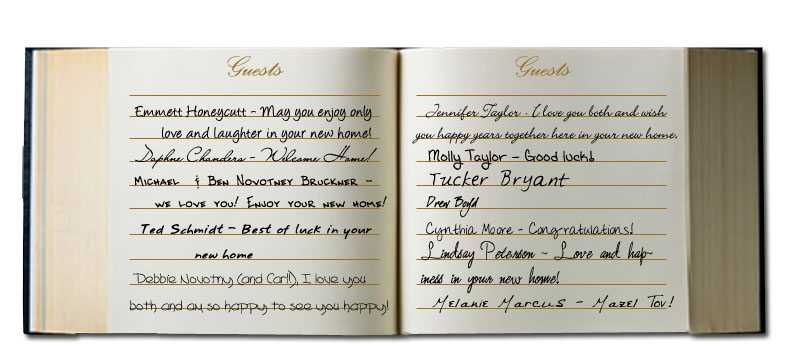 Guests
Emmett Honeycutt - May you enjoy only
love and laughter in your new home!
Daphne Chanders - Welcome Home!
Michael & Ben Novotney Bruckner -
we love you! Enjoy your new home!
Ted Schmidt - Best of luck in your
new home
Debbie Novotny (and Carl!), I love you
both and am so happy to see you happy!
Guests
Jennifer Taylor - I love you both and wish
you happy years together here in your new home.
Molly Taylor - Good luck!
Tucker Bryant
Drew Boyd
Cynthia Moore - Congratulations!
Lindsay Peterson - Love and hap-
iness in your new home!
Melanie Marcus - Mazel Tov!